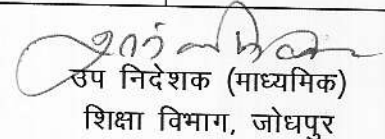 उप निदेशक (माध्यमिक)
शिक्षा विभाग, जोधपुर